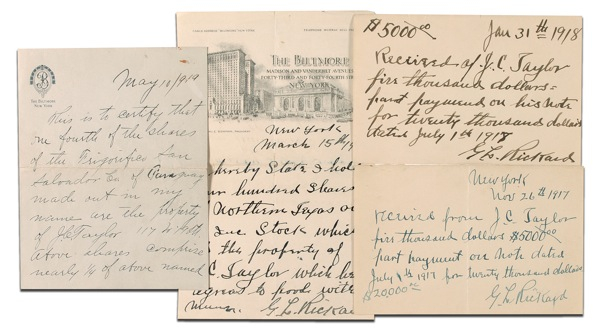 THE BILTMORE
NEW YORK
May 10/1919
This is to certify that
one fourth of the shares
of the Frigorifico San
Salvador Co of
made out in my
name are the property
of J.C. Taylor 117 W
above shares comprise
nearly 1/4 of above named
THE BILTMORE
MADISON AND VANDERBILT AVENUES
FORTY-THIRD AND FORTY-FOURTH STREETS
NEW YORK
New York
March 15th 19
hereby State I hold
four hundred Shares
Northern Texas
Stock which
the property of
J.C. Taylor which
agrees to with
G L Rickard
$5000.00
Jan 31th 1918
Received of J.C. Taylor
five thousand dollars
part payment on his Note
for twenty thousand dollars
dated July 1st 1917
G L Rickard
New York
Nov 26th 1917
received from J.C. Taylor
five thousand dollars $5000.00
part payment on Note dated
July 1st 1917 for twenty thousand dollars
$20,000.00
G L Rickard